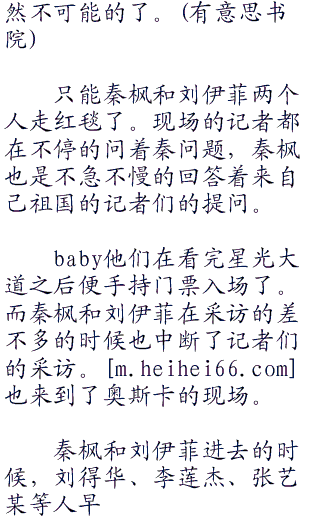 然不可能的了。(有意思书
院)
只能秦枫和刘伊菲两个
人走红毯了。现场的记者都
在不停的问着秦问题，秦枫
也是不急不慢的回答着来自
己祖国的记者们的提问。
baby他们在看完星光大
道之后便手持门票入场了。
而秦枫和刘伊菲在采访的差
不多的时候也中断了记者们
的采访。[m.heihei66.com]
也来到了奥斯卡的现场。
秦枫和刘伊菲进去的时
候，刘得华、李莲杰、张艺
某等人早